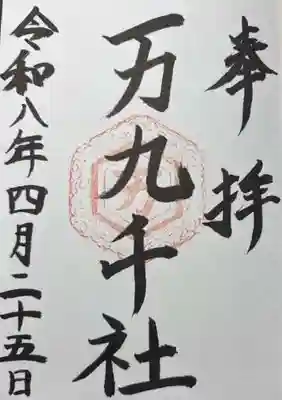 奉拝
万九千社
令和八年四月二十五日